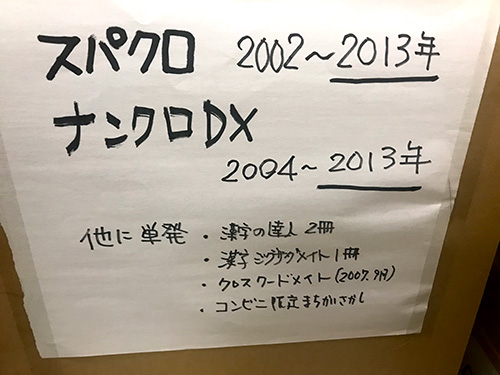 スパクロ 2002〜2013年
ナンクロDX
2004〜2013年
他に単発 ・漢字の達人 2冊
・漢字ジグザグメイト1冊
・クロスワードメイト(2007.9月)
・コンビニ限定まちがさがし